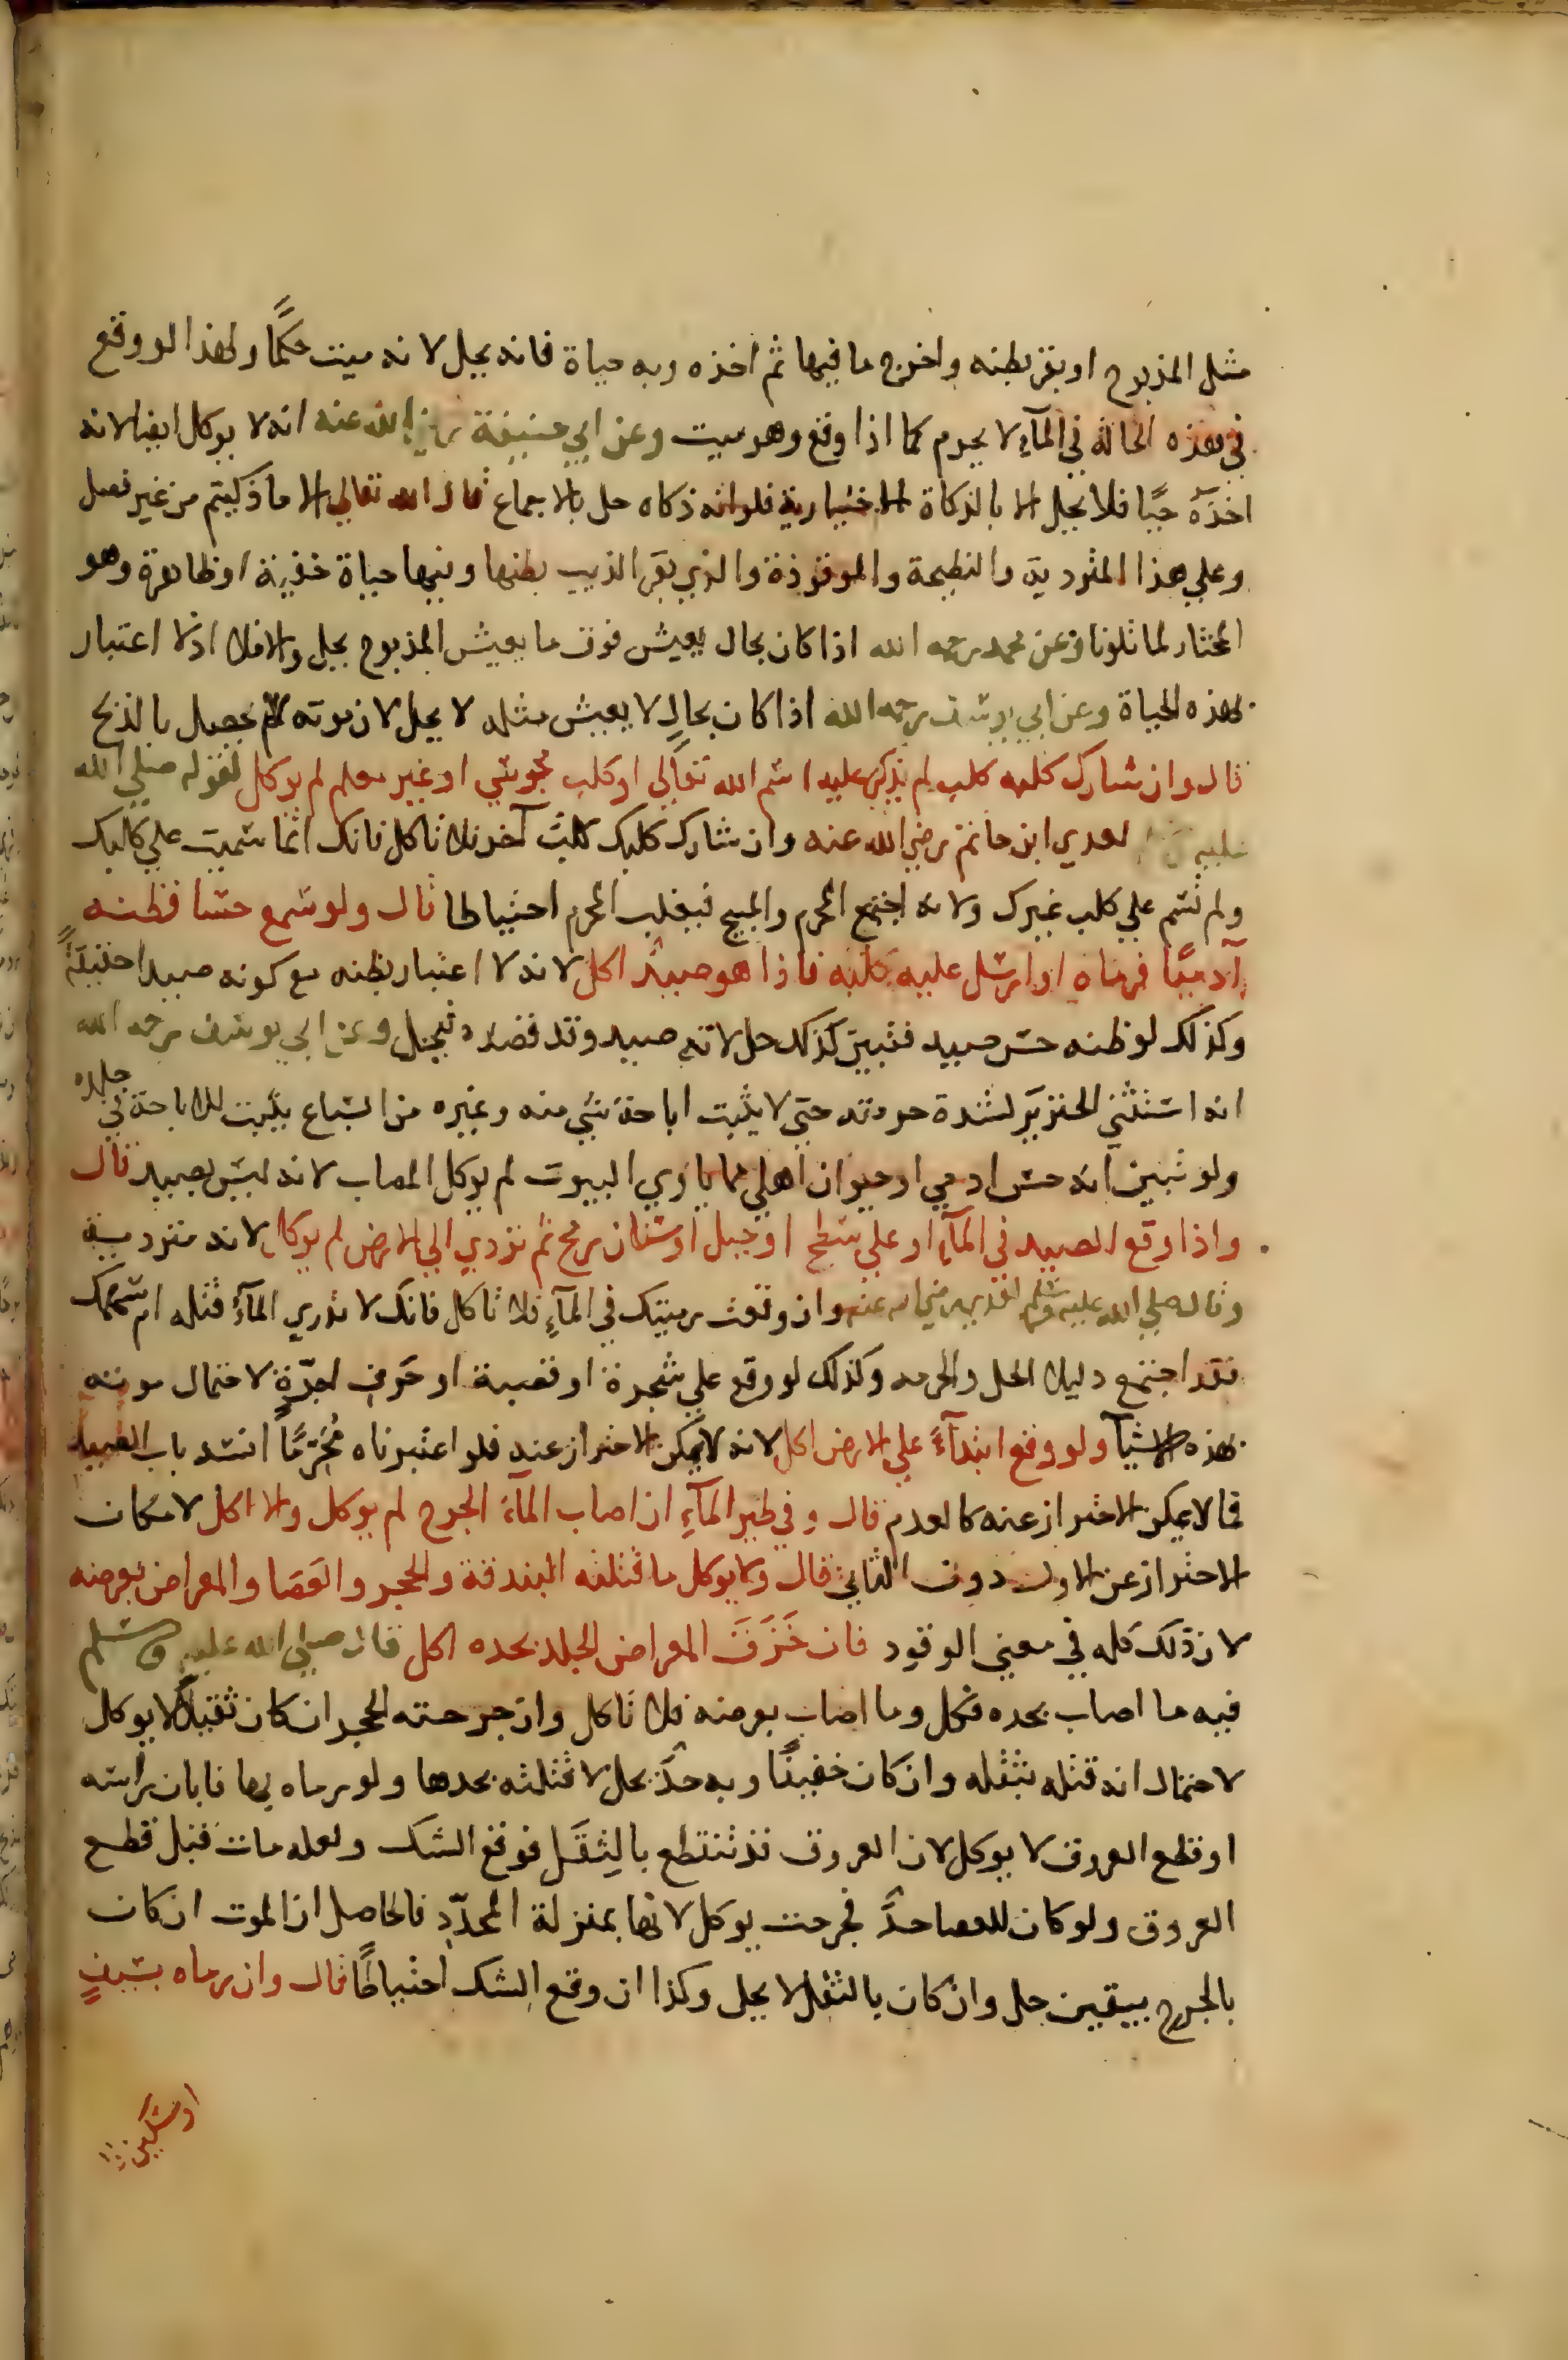 مثل المذبوح او بقر بطنه واخرج ما فيها ثم اخذه وبه حياة فانه يحل لانه ميت حكمًا ولهذا لو وقع
في هذه الحالة في المآء لا يحرم كما اذا وقع وهو ميت وعن ابي حنيفة رضي الله عنه انه لا يوكل ايضا لانه
اخذه حيًا فلا يحل الا بالذكاة الاختيارية فلو انه ذكاه حل بالاجماع قال الله تعالي الا ما ذكيتم من غير فصل
وعلي هذا المتردية والنطيحة والموقوذة والذي بقر الذيب بطنها وفيها حياة خفية او ظاهرة وهو
المختار لما تلونا وعن محمد رحمه الله اذا كان بحال يعيش فوق ما يعيش المذبوح يحل والا فلا اذ لا اعتبار
لهذه الحياة وعن ابي يوسف رحمه الله اذا كان بحالٍ لا يعيش مثله لا يحل لان موته لم يحصل بالذبح
قال وان شارك كلبه كلب لم يذكر عليه اسم الله تعالي او كلب مجوسي او غير معلم لم يوكل لقوله صلي الله
عليه وسلم لعدي ابن حاتم رضي الله عنه وان شارك كلبك كلبٌ آخر فلا تاكل فانك انما سميت علي كلبك
ولم تسم علي كلب غيرك ولانه اجتمع المحرم والمبيح فيغلب المحرم احتياطا قال ولو سمع حسا فظنه
آدميًا فرماه او ارسل عليه كلبه فاذا هو صيدٌ اكل لانه لا اعتبار بظنه مع كونه صيدا حقيقةً
وكذلك لو ظنه حس صيد فتبين كذلك حل لانه صيد وقد قصده فيحل وعن ابي يوسف رحمه الله
انه استثني الخنزير لشدة حرمته حتي لا يثبت اباحة شي منه وغيره من السباع يثبت الاباحة في جلده
ولو تبين انه حس ادمي او حيوان اهلي مما ياوي البيوت لم يوكل المصاب لانه ليس بصيد قال
واذا وقع الصيد في المآء او علي سطح او جبل او سنان رمح ثم تردي الي الارض لم يوكل لانه متردية
وقال صلي الله عليه وسلم لعدي رضي الله عنه وان وقعت رميتك في المآءِ فلا تاكل فانك لا تدري المآءُ قتله ام سهمك
فقد اجتمع دليل الحل والحرمه وكذلك لو وقع علي شجرة او قصبة او حرف اجرّةٍ لاحتمال موته
بهذه الاشيآ ولو وقع ابتدآءً علي الارض اكل لانه لا يمكن الاحتراز عنه فلو اعتبرناه مُحَرِّمًا انسد باب الصيد
فما لا يمكن الاحتراز عنه كالعدم قال وفي طير المآءِ ان اصاب المآءُ الجرح لم يوكل والا اكل لامكان
الاحتراز عن الاول دون الثاني قال ولا يوكل ما قتلته البندقة والحجر والعَصَا والمعراض بعرضه
لان ذلك كله في معني الوقود فان خَزَقَ المعراض الجلد بحده اكل قال صلي الله عليه وسلم
فيه ما اصاب بحده فكل وما اصاب بعرضه فلا تاكل وان جرحته الحجر ان كان ثقيلًا لا يوكل
لاحتمال انه قتله بثقله وان كان خفيفًا وبه حدٌّ يحل لا قتلته بحدها ولو رماه بها فابان راسه
او قطع العروق لا يوكل لان العروق قد تنقطع بالثِقَلِ فوقع الشك ولعله مات قبل قطع
العروق ولو كان للعصا حدٌّ فجرحت يوكل لانها بمنزلة المحدّدِ فالحاصل ان الموت ان كان
بالجرح بيقين حل وان كان بالثقل لا يحل وكذا ان وقع الشك احتياطًا قال وان رماه بسيفٍ
او سكين